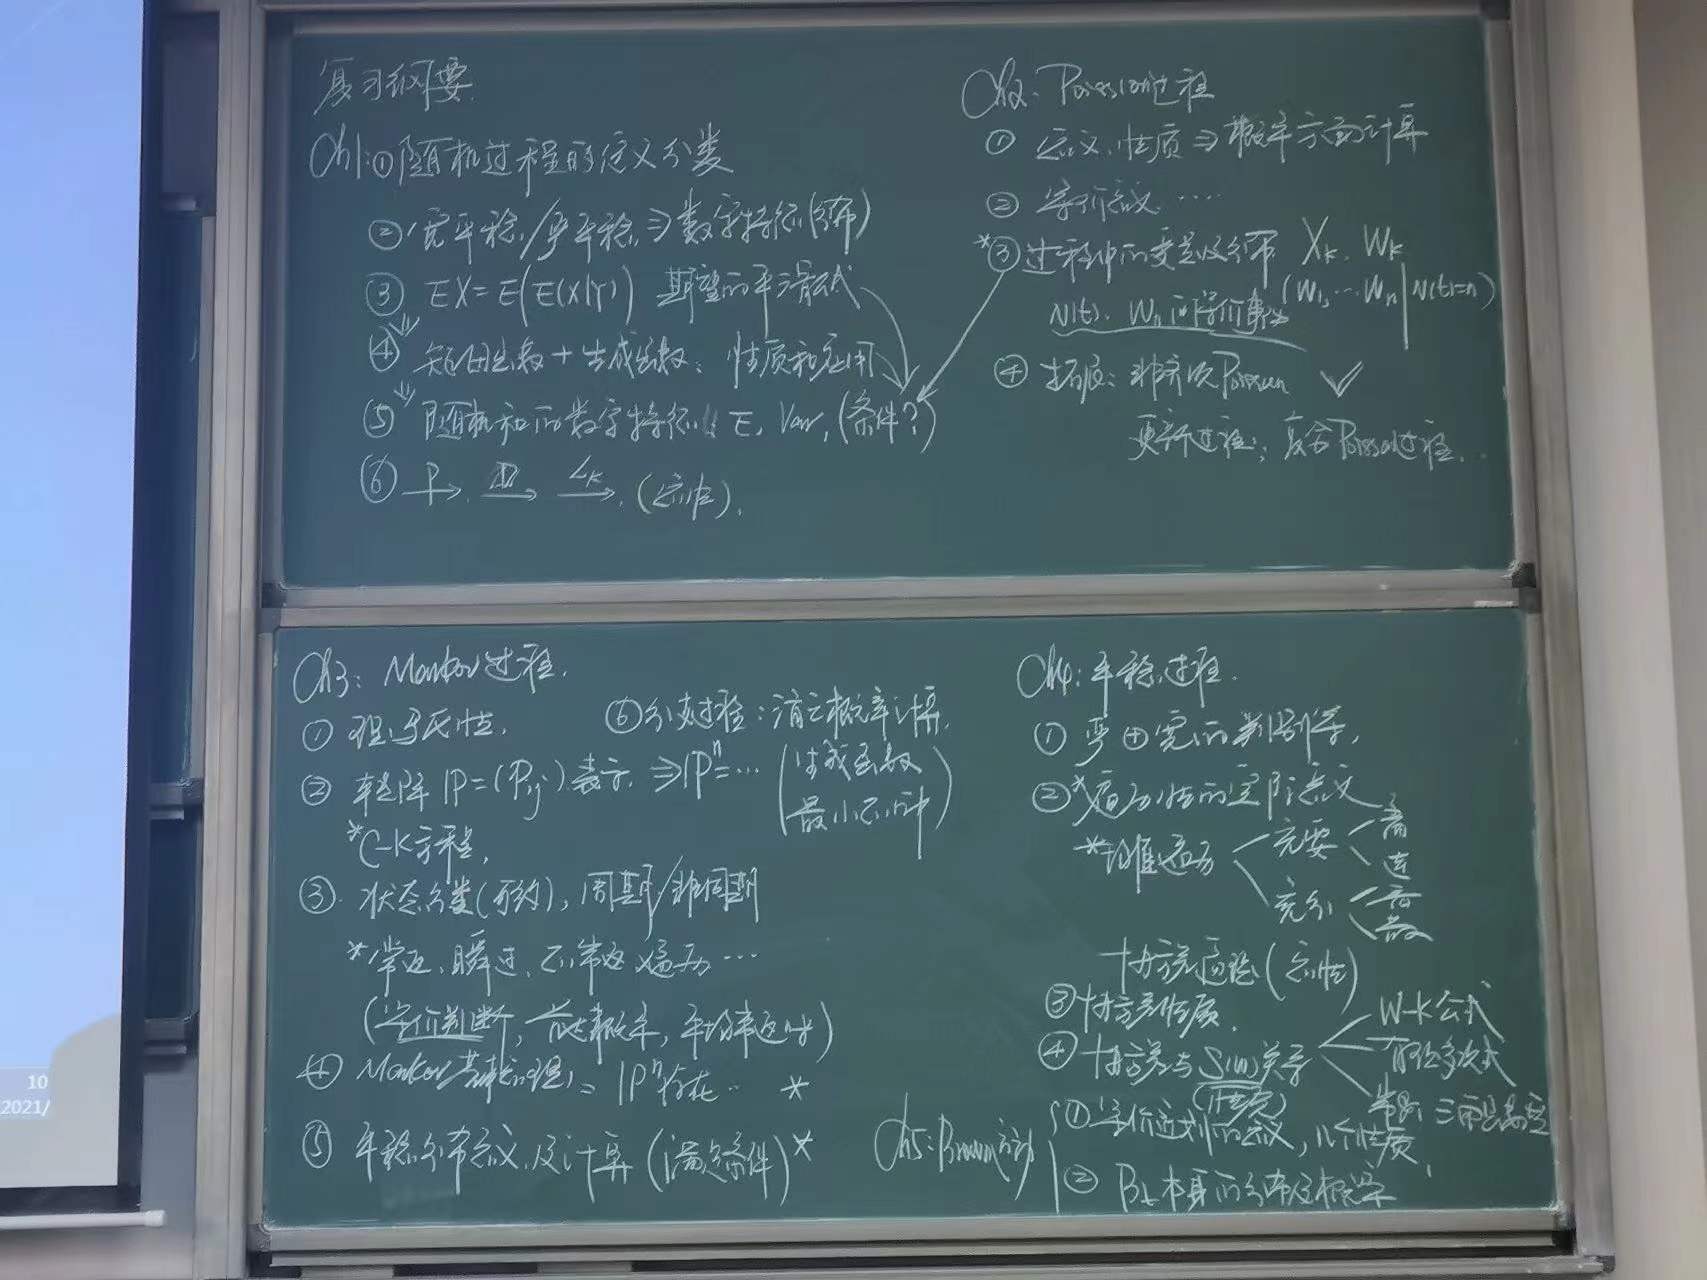 复习纲要
Ch1:①随机过程的定义分类
②宽平稳/严平稳⇒数字特征(分布)
③ EX=E(E(X|Y)) 期望的平滑公式
④ 矩母函数+生成函数:性质和应用
⑤ 随机和的数字特征 E, Var, (条件?)
⑥ P→, →, →. (定性).
Ch2: Poisson过程
① 定义、性质⇒概率方面计算
② 等价定义 ····
*③过程中的变量及分布 Xk. Wk
(W1, ··· Wn|N(t)=n)
N(t)、Wn 的等价事件
④ 拓展:非齐次Poisson ✓
更新过程;复合Poisson过程...
Ch3: Markov过程.
① 马氏性.
② 转移阵 P=(Pij)表示. ⇒Pⁿ=···
*C-K方程,
③ 状态分类(可约),周期/非周期
*常返、瞬过、正常返、遍历···
(等价判断,首达概率,平均常返时)
④ Markov基本极限: Pⁿ存在·· *
⑤ 平稳分布定义及计算(满足条件)*
⑥分支过程:消亡概率计算.
(生成函数
最小正解)
Ch4: 平稳过程.
① 严+宽的判别等,
②*遍历性的实际意义
*均值遍历
充要
充分
离
连
协方差遍历(定性)
③协方差性质.
④ 协方差与S(ω)关系
W-K公式
有理多项式
常数
Ch5:Brown运动
①等价定义,几个性质,
② Bt本身的分布及概率
10
2021/